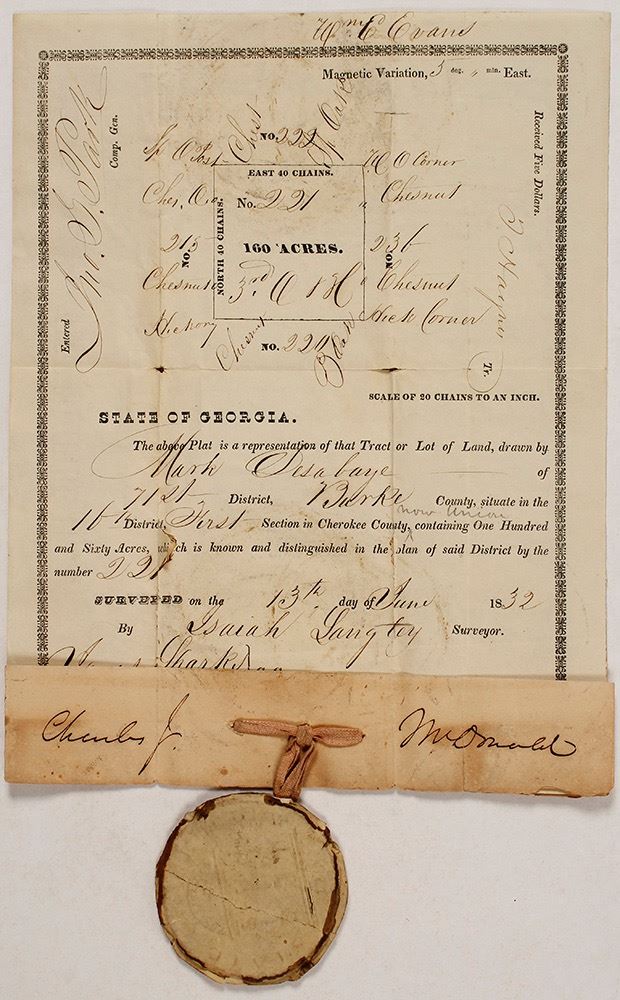 Wm. C. Evans
Magnetic Variation, 5 deg. " min. East.
Entered Jno. G. Park Comp. Gen.
Received Five Dollars.
T. Haynes Tr.
NO. 222
Ches
Sp Oak
Sp O Post
Ches, O
NO. 215
Chesnut
Hickory
EAST 40 CHAINS.
NORTH 40 CHAINS.
No. 221
160 ACRES.
3rd Q
H O Corner
" Chesnut
NO. 236
" Chesnut
Hick Corner
Chesnut
NO. 220
Black
SCALE OF 20 CHAINS TO AN INCH.
STATE OF GEORGIA.
The above Plat is a representation of that Tract or Lot of Land, drawn by
Mark of
71st District, Burke County, situate in the
now Union
16th District, First Section in Cherokee County, containing One Hundred
and Sixty Acres, which is known and distinguished in the plan of said District by the
number 221
SURVEYED on the 13th day of June 1832
By Isaiah Langley Surveyor.
Charles J. McDonald